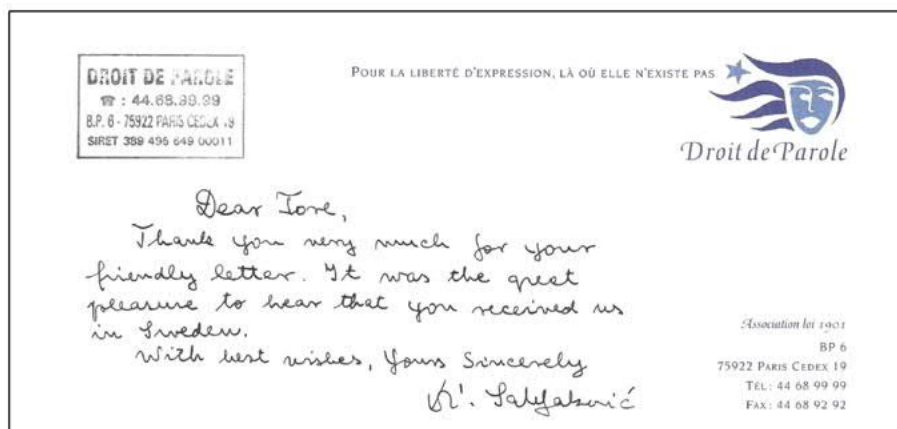 DROIT DE PAROLE
☎ : 44.68.99.99
B.P. 6 - 75922 PARIS CEDEX 19
SIRET 389 496 649 00011
POUR LA LIBERTÉ D'EXPRESSION, LÀ OÙ ELLE N'EXISTE PAS
Droit de Parole
Dear Tore,
Thank you very much for your
friendly letter. It was the great
pleasure to hear that you received us
in Sweden.
With best wishes, Yours Sincerely
Association loi 1901
BP 6
75922 PARIS CEDEX 19
TÉL : 44 68 99 99
FAX : 44 68 92 92